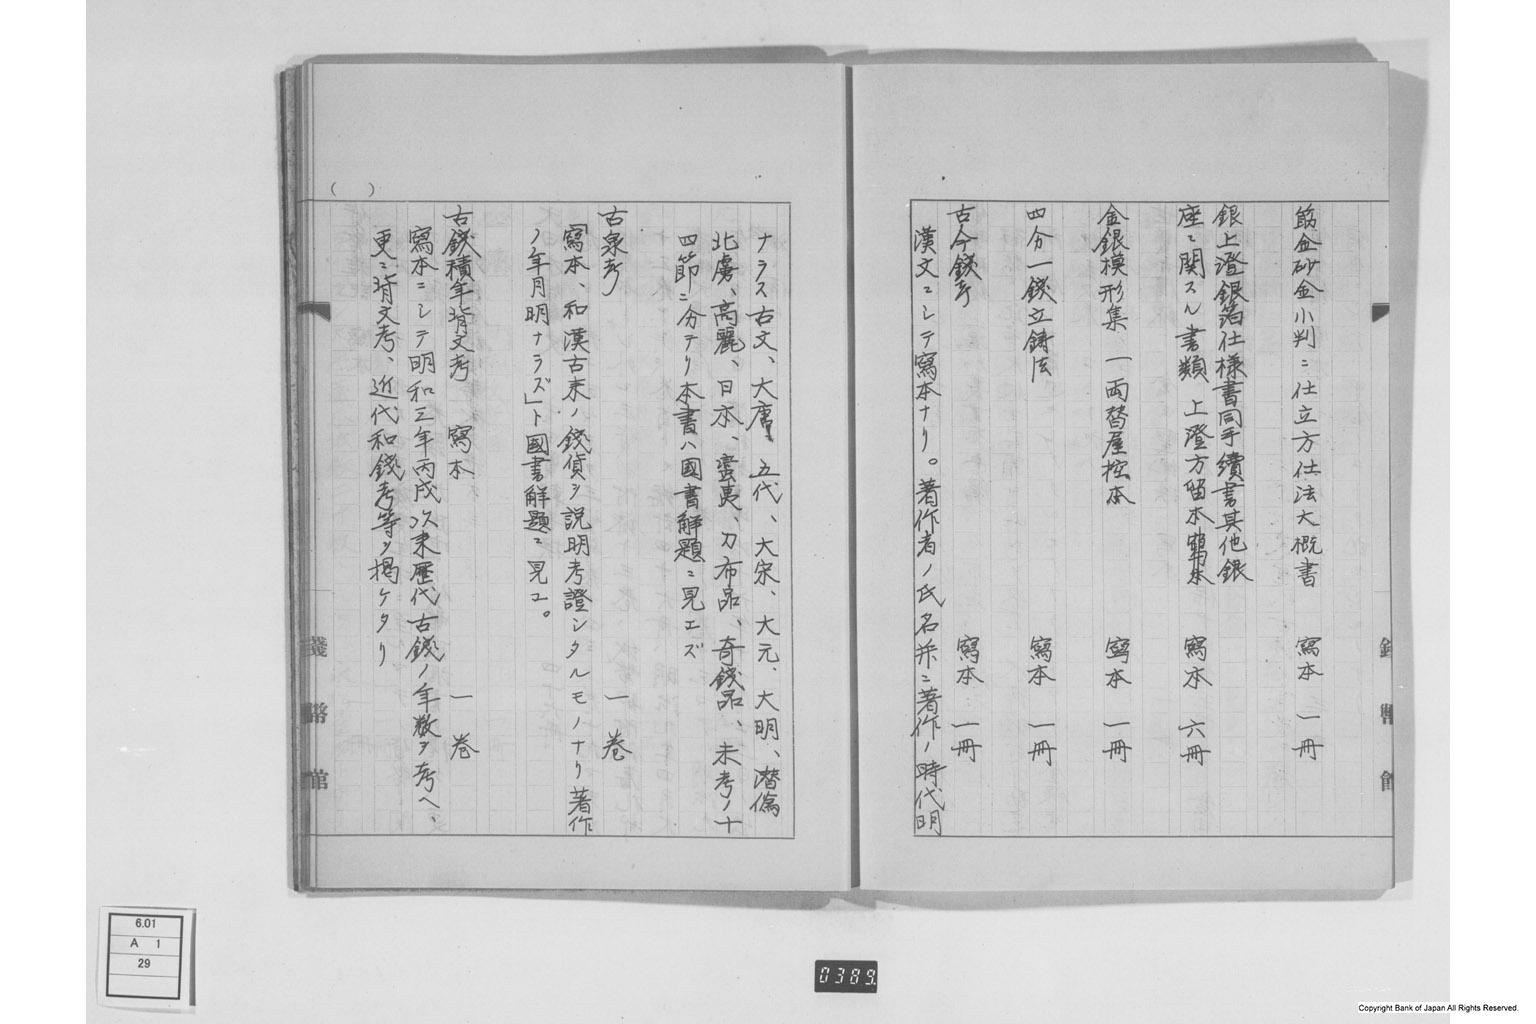 筋金砂金小判ニ仕立方仕法大概書　寫本　一冊
銀上澄銀箔仕様書同手續書其他銀
座ニ関スル書類　上澄方留本　寫本　六冊
金銀模形集　一　両替屋控本　寫本　一冊
四分一錢立鋳法　寫本　一冊
古今錢考　寫本　一冊
漢文ニシテ寫本ナリ。著作者ノ氏名并ニ著作ノ時代明
ナラス古文、大唐、五代、大宋、大元、大明、潜偽
北虜、高麗、日本、蛮夷、刀布品、奇錢品、未考ノ十
四節ニ分テリ本書ハ國書解題ニ見エズ
古泉考　一巻
寫本、和漢古来ノ錢貨ヲ説明考證シタルモノナリ著作
ノ年月明ナラズ」ト國書解題ニ見エ。
古錢積年背文考　寫本　一巻
寫本ニシテ明和三年丙戌ノ次来歴代古錢ノ年数ヲ考へ、
更ニ背文考、近代和錢考等ヲ掲ケタリ
(　)
錢幣館
6.01
A 1
29
0389
Copyright Bank of Japan All Rights Reserved.